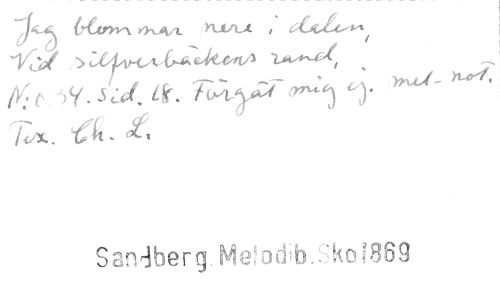 Jag blommar nere i dalen,
Vid silfverbäckens rand,
N:o 34. Sid. 18. Förgät mig ej. mel-not.
Tex. Ch. L.
Sandberg. Melodib. Sko 1869